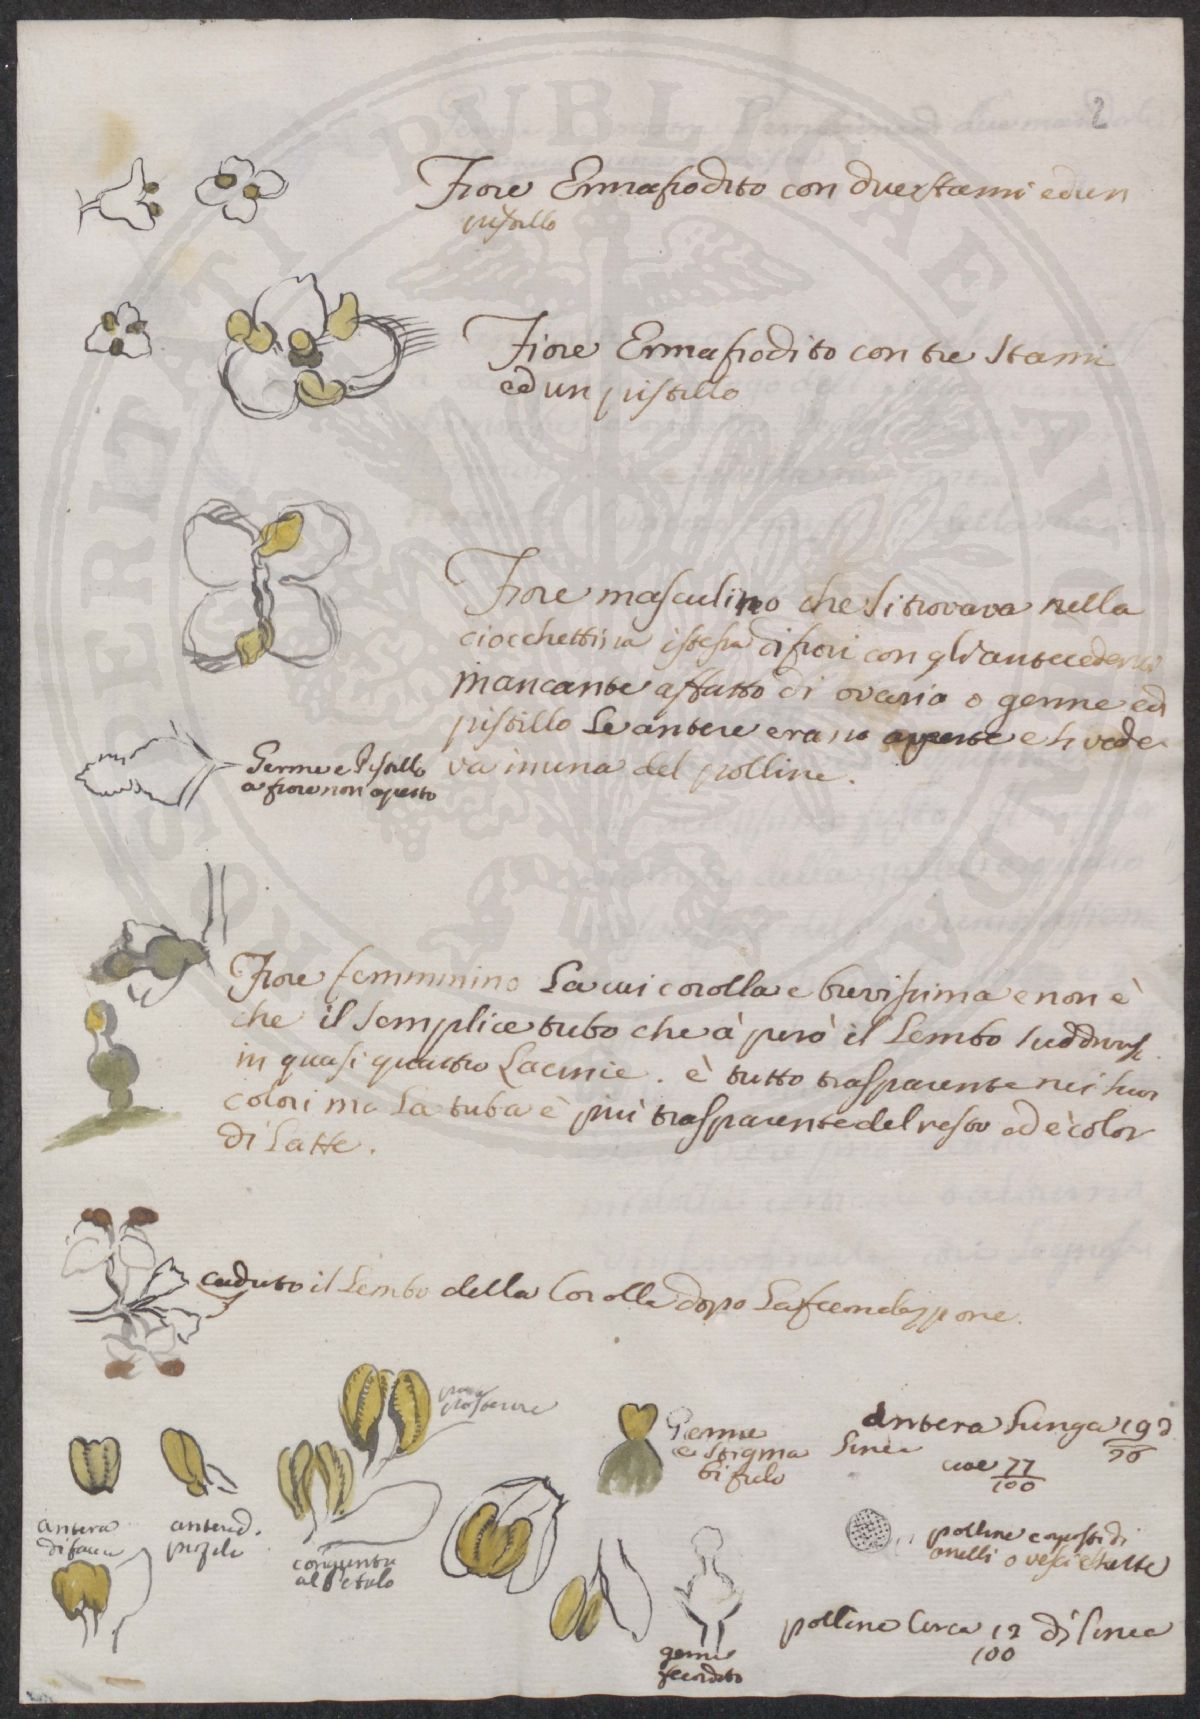 2
Fiore Ermafrodito con due stami ed un
pistillo
Fiore Ermafrodito con tre stami
ed un pistillo
Fiore masculino che si trovava nella
ciocchettina istessa di fiori con gl'antecedenti
mancante affatto di ovario o germe ed
pistillo Le antere erano aperte e si vede
va in una del polline.
Germe e Pistillo
a fiore non aperto
Fiore femminino La cui corolla e brevissima e non è
che il semplice tubo che à però il Lembo suddiviso
in quasi quattro Lacinie. è tutto trasparente nei suoi
colori ma La tuba è più trasparente del resto ed è color
di Latte.
caduto il Lembo della Corolla dopo La fecondazione.
parte posteriore
Germe
e stigma
bifido
Antera lunga 192
Linea
cioe 77
100
antera
di facia
antera d.
profilo
congiunta
al Petalo
polline composti di
anelli o vescichette
polline circa 12 di linea
100
germe
fecondato
SOSPERITATI PVBLICAE AVGENDAE